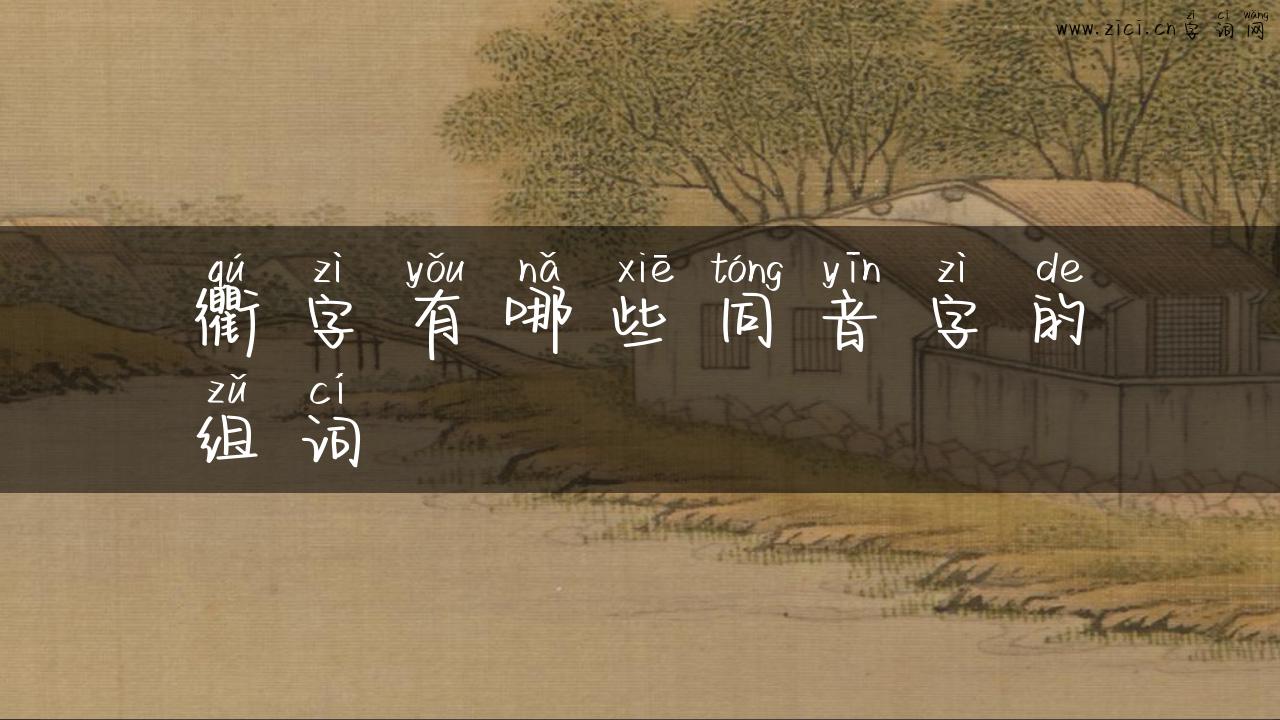 zì cí wǎng
www.zici.cn字词网
qú zì yǒu nǎ xiē tóng yīn zì de
衢字有哪些同音字的
zǔ cí
组词